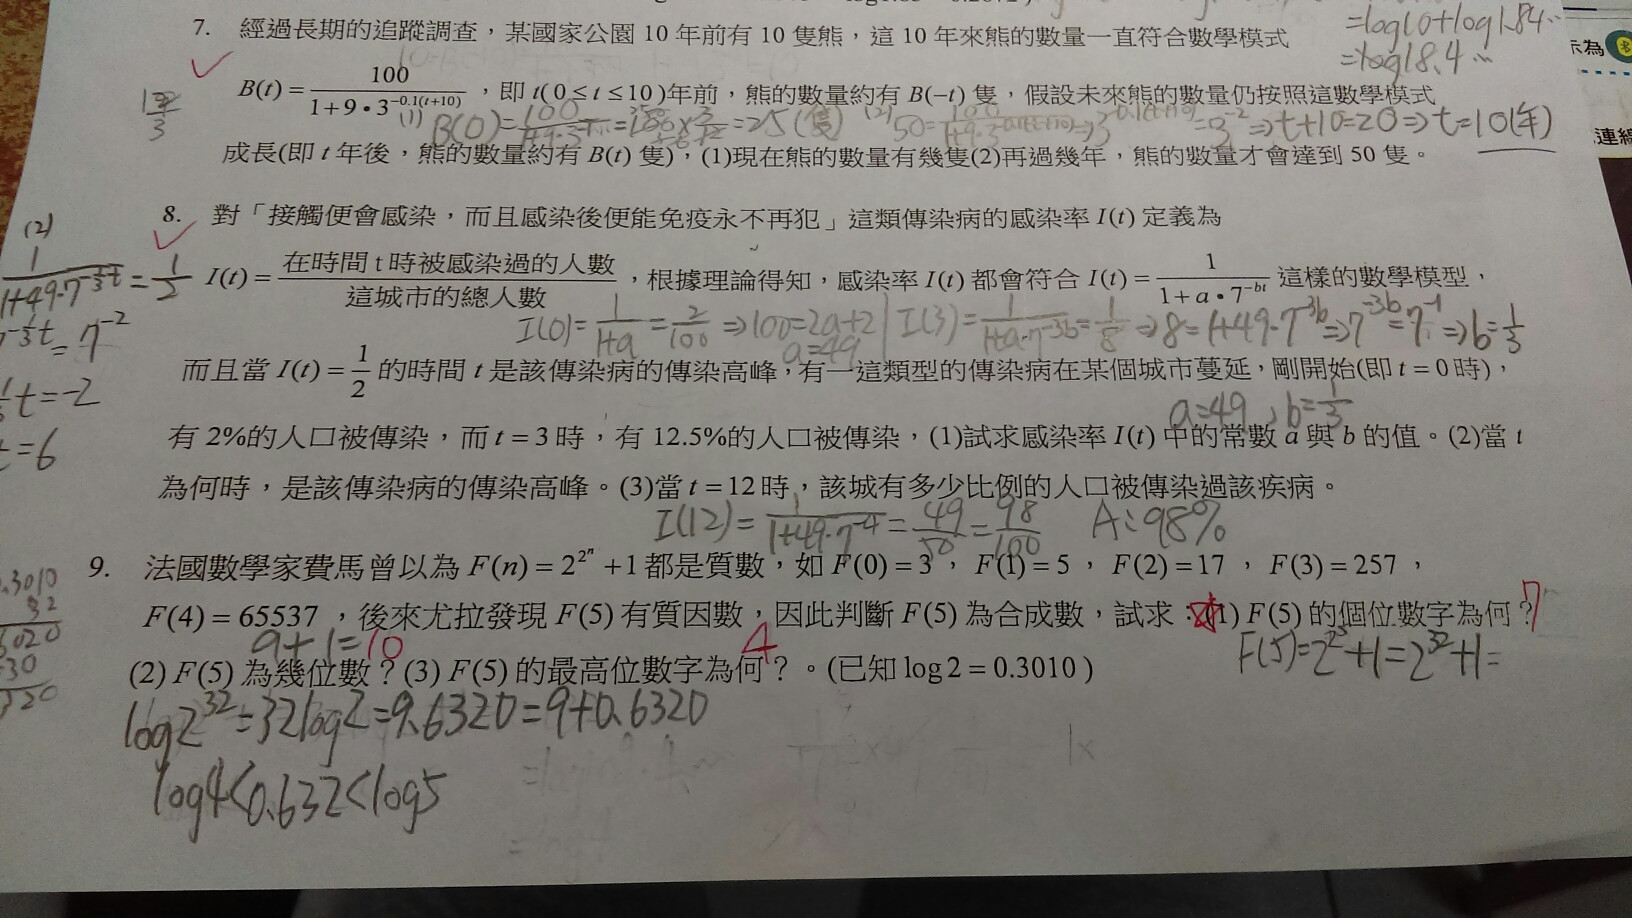 =log10+log1.84...
=log18.4...
7. 經過長期的追蹤調查，某國家公園 10 年前有 10 隻熊，這 10 年來熊的數量一直符合數學模式
示為
B(t) = 100 / (1+9•3^(-0.1(t+10)))，即 t(0≤t≤10)年前，熊的數量約有 B(-t) 隻，假設未來熊的數量仍按照這數學模式
(1) B(0)= =25(隻) (2) 50= =3^-2 ⇒t+10=20⇒t=10(年)
成長(即 t 年後，熊的數量約有 B(t) 隻)，(1)現在熊的數量有幾隻(2)再過幾年，熊的數量才會達到 50 隻。
連線
8. 對「接觸便會感染，而且感染後便能免疫永不再犯」這類傳染病的感染率 I(t) 定義為
(2)
1/(1+49·7^(-1/3t)) = 1/2
I(t) = 在時間 t 時被感染過的人數 / 這城市的總人數，根據理論得知，感染率 I(t) 都會符合 I(t) = 1/(1+a•7^(-bt)) 這樣的數學模型，
I(0)=1/(1+a)=2/100⇒100=2a+2 | I(3)=1/(1+a·7^(-3b))=1/8⇒8=1+49·7^(-3b)⇒7^(-3b)=7^-1⇒b=1/3
a=49
=7^-2
而且當 I(t) = 1/2 的時間 t 是該傳染病的傳染高峰，有一這類型的傳染病在某個城市蔓延，剛開始(即 t = 0 時)，
t=-2
a=49，b=1/3
有 2%的人口被傳染，而 t = 3 時，有 12.5%的人口被傳染，(1)試求感染率 I(t) 中的常數 a 與 b 的值。(2)當 t
t=6
為何時，是該傳染病的傳染高峰。(3)當 t = 12 時，該城有多少比例的人口被傳染過該疾病。
I(12)=1/(1+49·7^-4)=49/50=98/100 A:98%
9. 法國數學家費馬曾以為 F(n) = 2^(2^n) + 1 都是質數，如 F(0) = 3，F(1) = 5，F(2) = 17，F(3) = 257，
.3010
32
6020
F(4) = 65537，後來尤拉發現 F(5) 有質因數，因此判斷 F(5) 為合成數，試求：(1) F(5) 的個位數字為何？7
9+1=10
4
F(5)=2^(2^5)+1=2^32+1=
(2) F(5) 為幾位數？(3) F(5) 的最高位數字為何？。(已知 log 2 = 0.3010)
log2^32=32log2=9.6320=9+0.6320
log4<0.632<log5